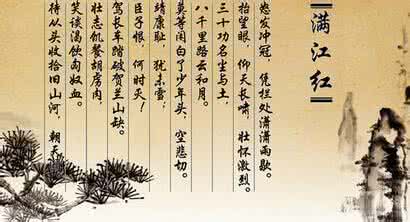 满江红
怒发冲冠，凭栏处潇潇雨歇。
抬望眼，仰天长啸，壮怀激烈。
三十功名尘与土，
八千里路云和月。
莫等闲白了少年头，空悲切。
靖康耻，犹未雪；
臣子恨，何时灭！
驾长车踏破贺兰山缺。
壮志饥餐胡虏肉，
笑谈渴饮匈奴血。
待从头收拾旧山河，朝